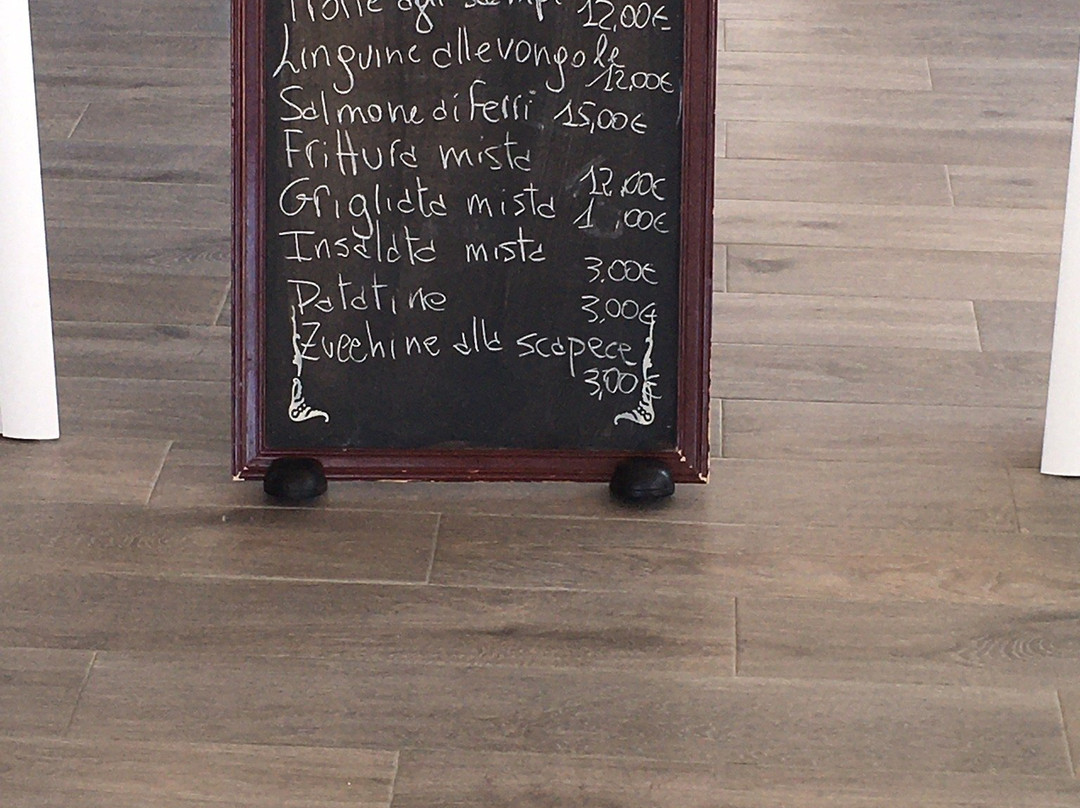 agli scampi 12,00€
Linguine alle vongole
12,00€
Salmone di ferri 15,00€
Frittura mista
12,00€
Grigliata mista
Insalata mista
3,00€
Patatine 3,00€
Zucchine alla scapece
3,00€